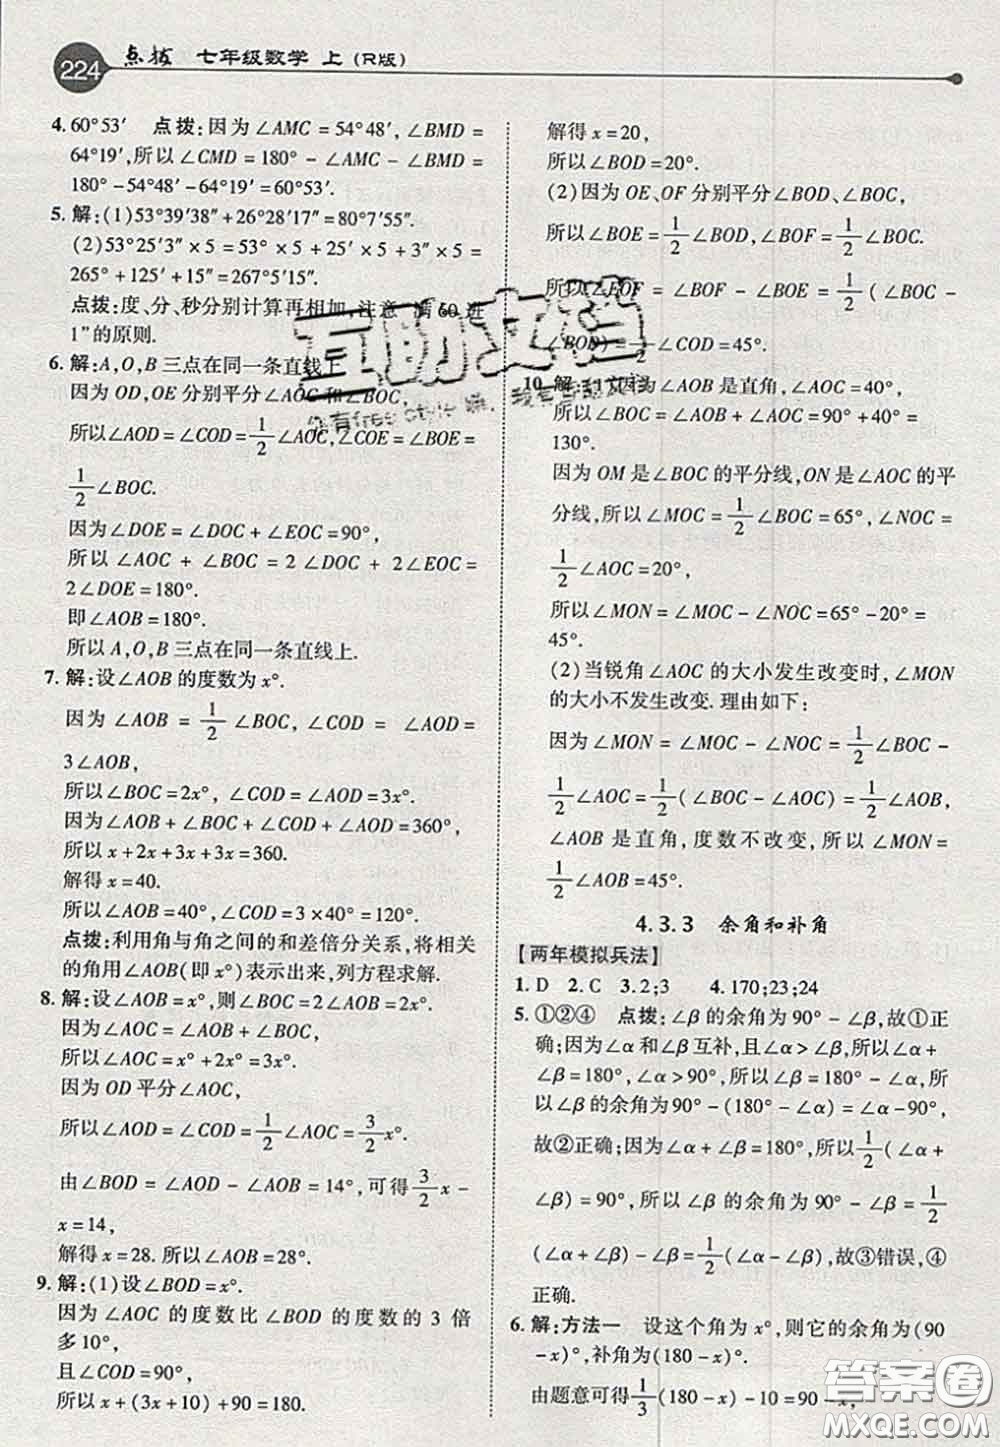 224 点拨 七年级数学 上(R版)
4. 60°53′ 点拨:因为∠AMC=54°48′,∠BMD=
64°19′,所以∠CMD=180°-∠AMC-∠BMD=
180°-54°48′-64°19′=60°53′.
5. 解:(1)53°39′38″+26°28′17″=80°7′55″.
(2)53°25′3″×5=53°×5+25′×5+3″×5=
265°+125′+15″=267°5′15″.
点拨:度、分、秒分别计算再相加,注意 满60进
1”的原则.
6. 解:A,O,B三点在同一条直线上
因为OD,OE分别平分∠AOC和∠BOC,
所以∠AOD=∠COD=1/2∠AOC,∠COE=∠BOE=
1/2∠BOC.
因为∠DOE=∠DOC+∠EOC=90°,
所以∠AOC+∠BOC=2∠DOC+2∠EOC=
2∠DOE=180°.
即∠AOB=180°.
所以A,O,B三点在同一条直线上.
7. 解:设∠AOB的度数为x°.
因为∠AOB=1/2∠BOC,∠COD=∠AOD=
3∠AOB,
所以∠BOC=2x°,∠COD=∠AOD=3x°.
因为∠AOB+∠BOC+∠COD+∠AOD=360°,
所以x+2x+3x+3x=360.
解得x=40.
所以∠AOB=40°,∠COD=3×40°=120°.
点拨:利用角与角之间的和差倍分关系,将相关
的角用∠AOB(即x°)表示出来,列方程求解.
8. 解:设∠AOB=x°,则∠BOC=2∠AOB=2x°.
因为∠AOC=∠AOB+∠BOC,
所以∠AOC=x°+2x°=3x°.
因为OD平分∠AOC,
所以∠AOD=∠COD=1/2∠AOC=3/2x°.
由∠BOD=∠AOD-∠AOB=14°,可得3/2x-
x=14,
解得x=28.所以∠AOB=28°.
9. 解:(1)设∠BOD=x°.
因为∠AOC的度数比∠BOD的度数的3倍
多10°,
且∠COD=90°,
所以x+(3x+10)+90=180.
解得x=20,
所以∠BOD=20°.
(2)因为OE、OF分别平分∠BOD、∠BOC,
所以∠BOE=1/2∠BOD,∠BOF=1/2∠BOC.
所以∠EOF=∠BOF-∠BOE=1/2(∠BOC-
∠BOD)=1/2∠COD=45°.
10. 解:(1)因为∠AOB是直角,∠AOC=40°,
所以∠BOC=∠AOB+∠AOC=90°+40°=
130°.
因为OM是∠BOC的平分线,ON是∠AOC的平
分线,所以∠MOC=1/2∠BOC=65°,∠NOC=
1/2∠AOC=20°,
所以∠MON=∠MOC-∠NOC=65°-20°=
45°.
(2)当锐角∠AOC的大小发生改变时,∠MON
的大小不发生改变.理由如下:
因为∠MON=∠MOC-∠NOC=1/2∠BOC-
1/2∠AOC=1/2(∠BOC-∠AOC)=1/2∠AOB,
∠AOB是直角,度数不改变,所以∠MON=
1/2∠AOB=45°.
4.3.3 余角和补角
【两年模拟兵法】
1. D 2. C 3. 2;3 4. 170;23;24
5. ①②④ 点拨:∠β的余角为90°-∠β,故①正
确;因为∠α和∠β互补,且∠α>∠β,所以∠α+
∠β=180°,∠α>90°,所以∠β=180°-∠α,所
以∠β的余角为90°-(180°-∠α)=∠α-90°,
故②正确;因为∠α+∠β=180°,所以1/2(∠α+
∠β)=90°,所以∠β的余角为90°-∠β=1/2
(∠α+∠β)-∠β=1/2(∠α-∠β),故③错误,④
正确.
6. 解:方法一 设这个角为x°,则它的余角为(90
-x)°,补角为(180-x)°.
由题意可得1/3(180-x)-10=90-x,
互助文档
答案圈
MXQE.COM